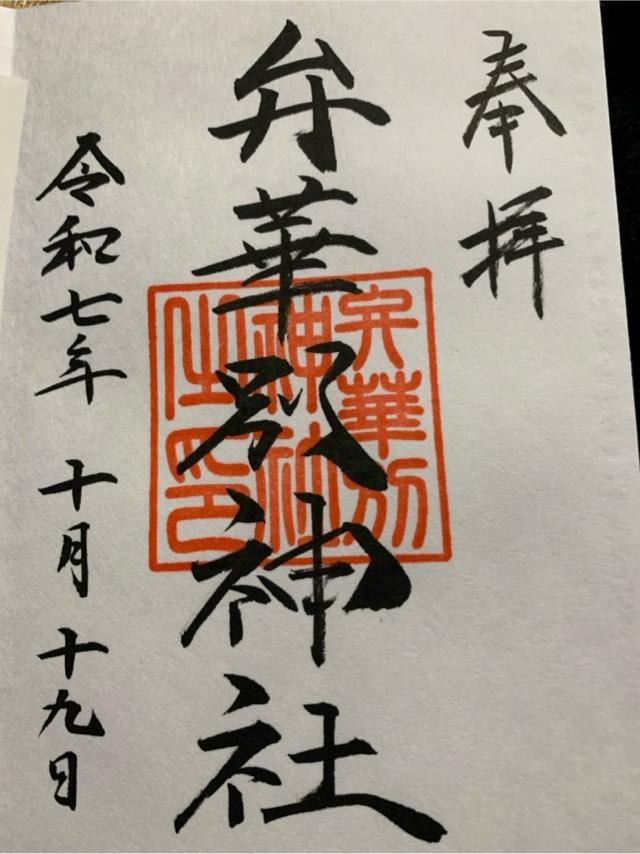 奉拝
弁華別神社
弁華別
神社
之印
令和七年 十月 十九日